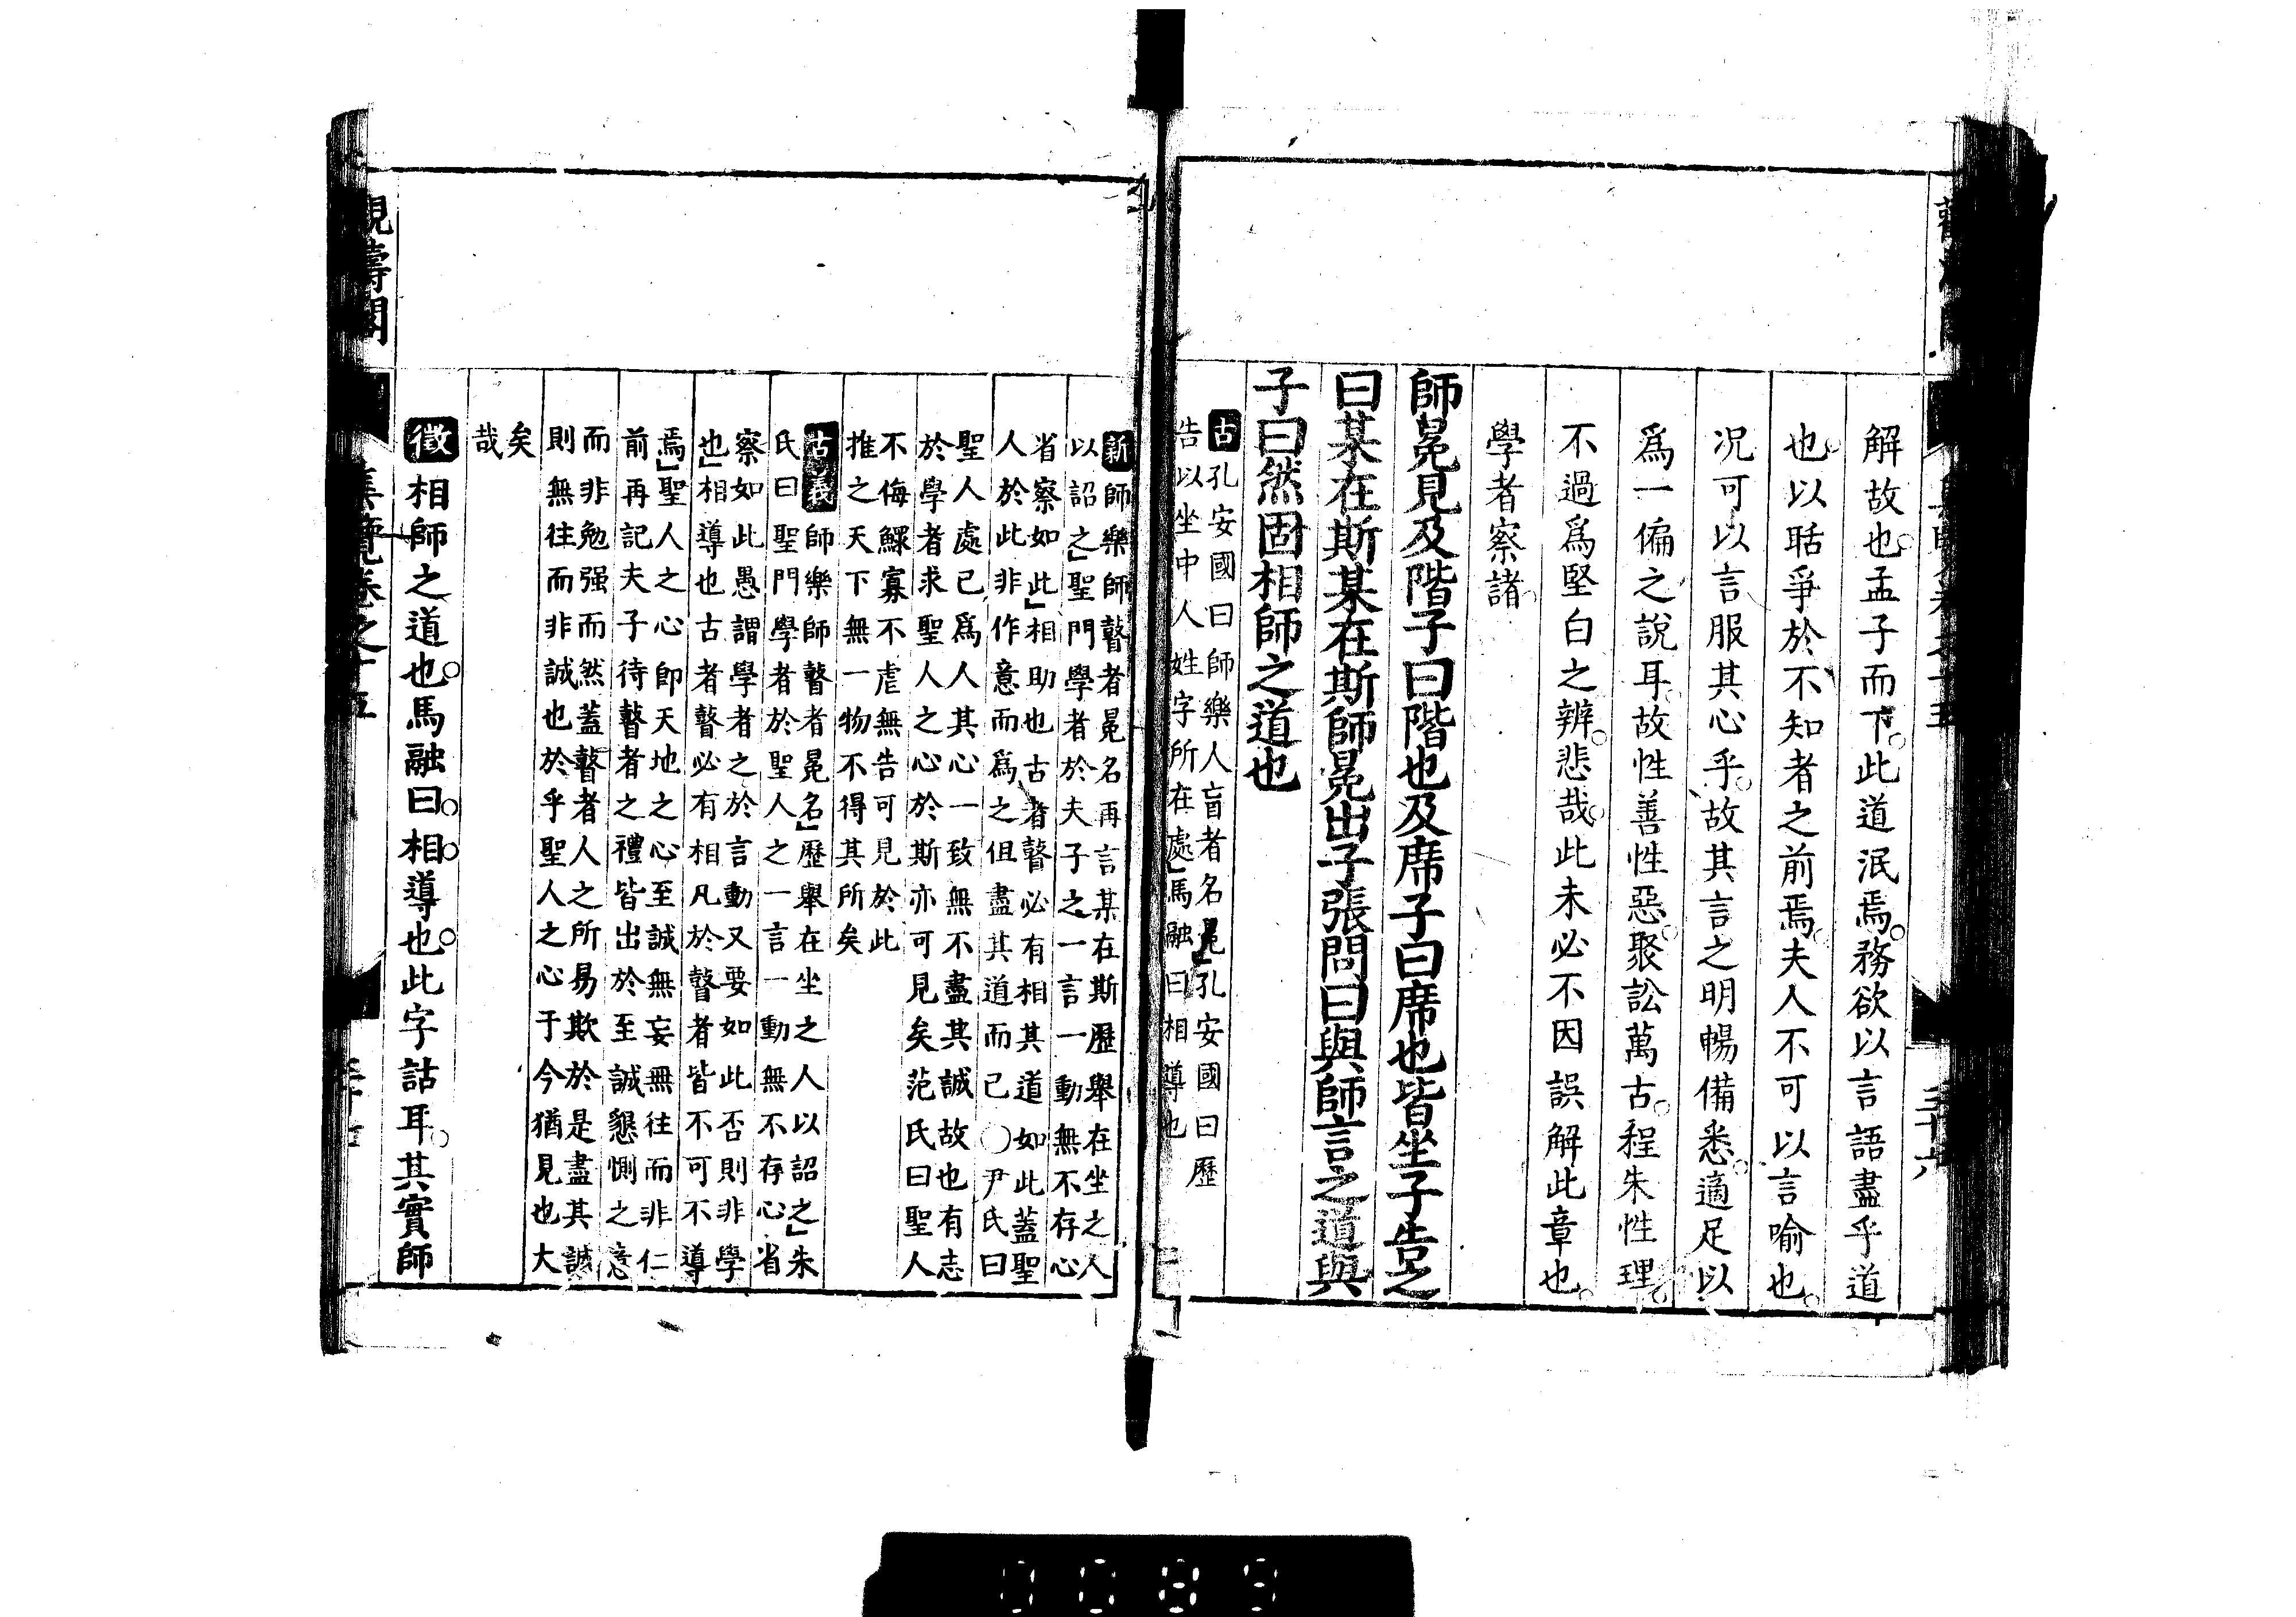 解故也孟子而下此道泯焉務欲以言語盡乎道
也以聒爭於不知者之前焉夫人不可以言喻也
况可以言服其心乎故其言之明暢備悉適足以
爲一偏之說耳故性善性惡聚訟萬古程朱性理
不過爲堅白之辨悲哉此未必不因誤解此章也
學者察諸
師冕見及階子曰階也及席子曰席也皆坐子告之
曰某在斯某在斯師冕出子張問曰與師言之道與
子曰然固相師之道也
古孔安國曰師樂人盲者名冕孔安國曰歷
告以坐中人姓字所在處馬融曰相導也
新師樂師瞽者冕名再言某在斯歷舉在坐之人
以詔之聖門學者於夫子之一言一動無不存心
省察如此相助也古者瞽必有相其道如此蓋聖
人於此非作意而爲之但盡其道而已○尹氏曰
聖人處己爲人其心一致無不盡其誠故也有志
於學者求聖人之心於斯亦可見矣范氏曰聖人
不侮鰥寡不虐無告可見於此
推之天下無一物不得其所矣
古義師樂師瞽者冕名歷舉在坐之人以詔之朱
氏曰聖門學者於聖人之一言一動無不存心省
察如此愚謂學者之於言動又要如此否則非學
也相導也古者瞽必有相凡於瞽者皆不可不導
焉聖人之心即天地之心至誠無妄無往而非仁
前再記夫子待瞽者之禮皆出於至誠懇惻之意
而非勉强而然蓋瞽者人之所易欺於是盡其誠
則無往而非誠也於乎聖人之心于今猶見也大
矣
哉
徵相師之道也馬融曰相導也此字詁耳其實師
觀濤閣
集覽卷之十五